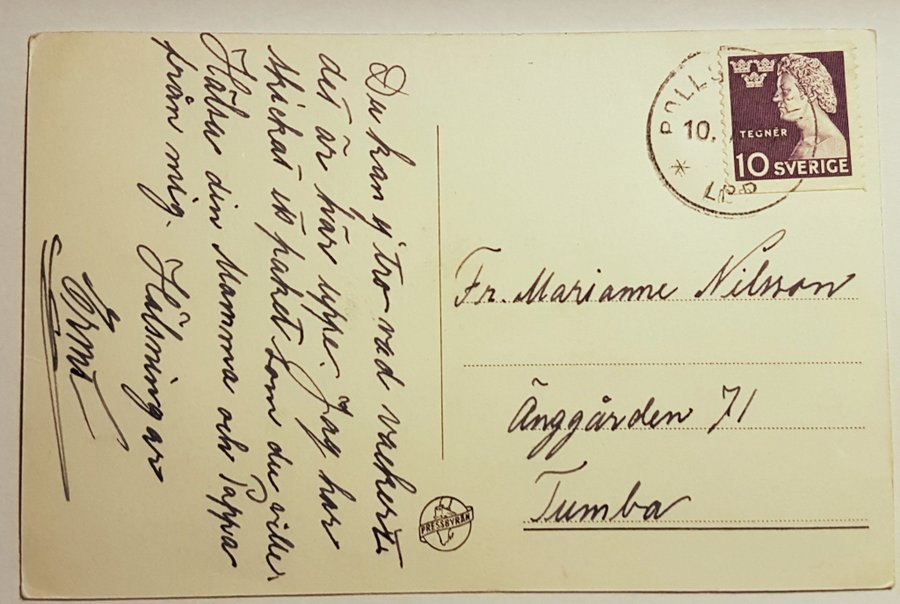 Du kan ej tro vad vackert
det är här uppe. Jag har
skickat ett paket som du
Hälsa din Mamma och Pappa
från mig. Hälsningar
Fr. Marianne Nilsson
Änggården 71
Tumba
PRESSBYRÅN
TEGNÉR
10 SVERIGE
10.